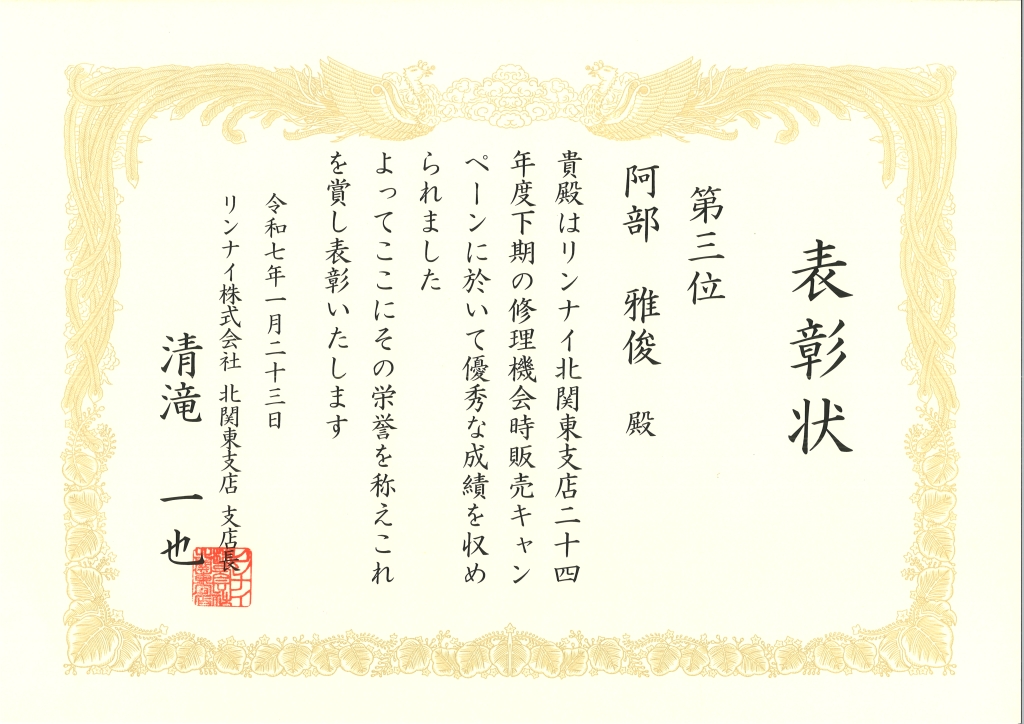 表彰状
第三位
阿部 雅俊 殿
貴殿はリンナイ北関東支店二十四
年度下期の修理機会時販売キャン
ペーンに於いて優秀な成績を収め
られました
よってここにその栄誉を称えこれ
を賞し表彰いたします
令和七年一月二十三日
リンナイ株式会社 北関東支店 支店長
清滝 一也